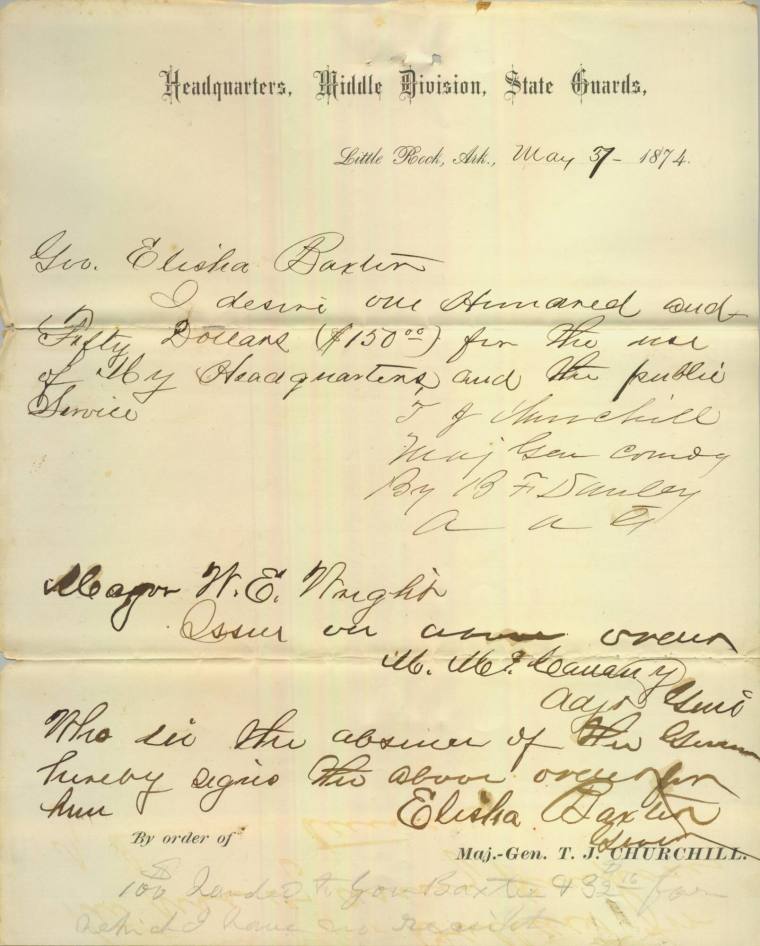 Headquarters, Middle Division, State Guards,
Little Rock, Ark., May 1874.
Gov. Elisha Baxter
I desire one Hundred and
Fifty Dollars ($150⁰⁰) for the use
of My Headquarters, and the public
Service
T J Churchill
Maj Gen Comdg
By B F Danley
A A G
Major W. E. Wright
Issue on above order
M. McCanany
Adjt Genl
Who in the absence of the Govenor
hereby signs the above order for
him
Elisha Baxter
Govenr
By order of
Maj.-Gen. T. J. CHURCHILL.
100 handed to Gov Baxter & for
which I have no receipt